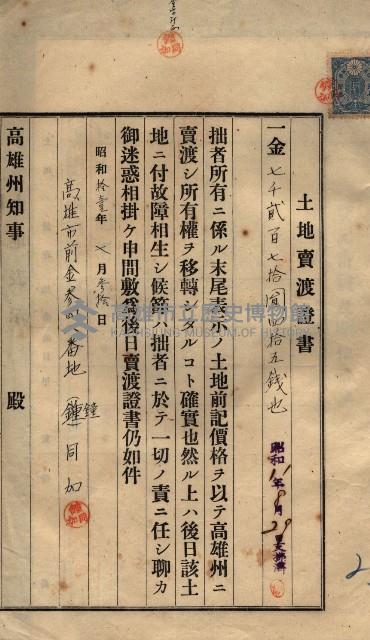 土地賣渡證書
一金七千貳百七拾圓四拾五錢也
昭和11年8月29日支拂濟
拙者所有ニ係ル末尾表示ノ土地前記價格ヲ以テ高雄州ニ
賣渡シ所有權ヲ移轉シタルコト確實也然ル上ハ後日該土
地ニ付故障相生シ候節ハ拙者ニ於テ一切ノ責ニ任シ聊カ
御迷惑相掛ケ申間敷為後日賣渡證書仍如件
昭和拾壹年七月參拾日
高雄市前金參番地
鍾同加
高雄州知事殿
高雄市立歷史博物館
KAOHSIUNG MUSEUM OF HISTORY